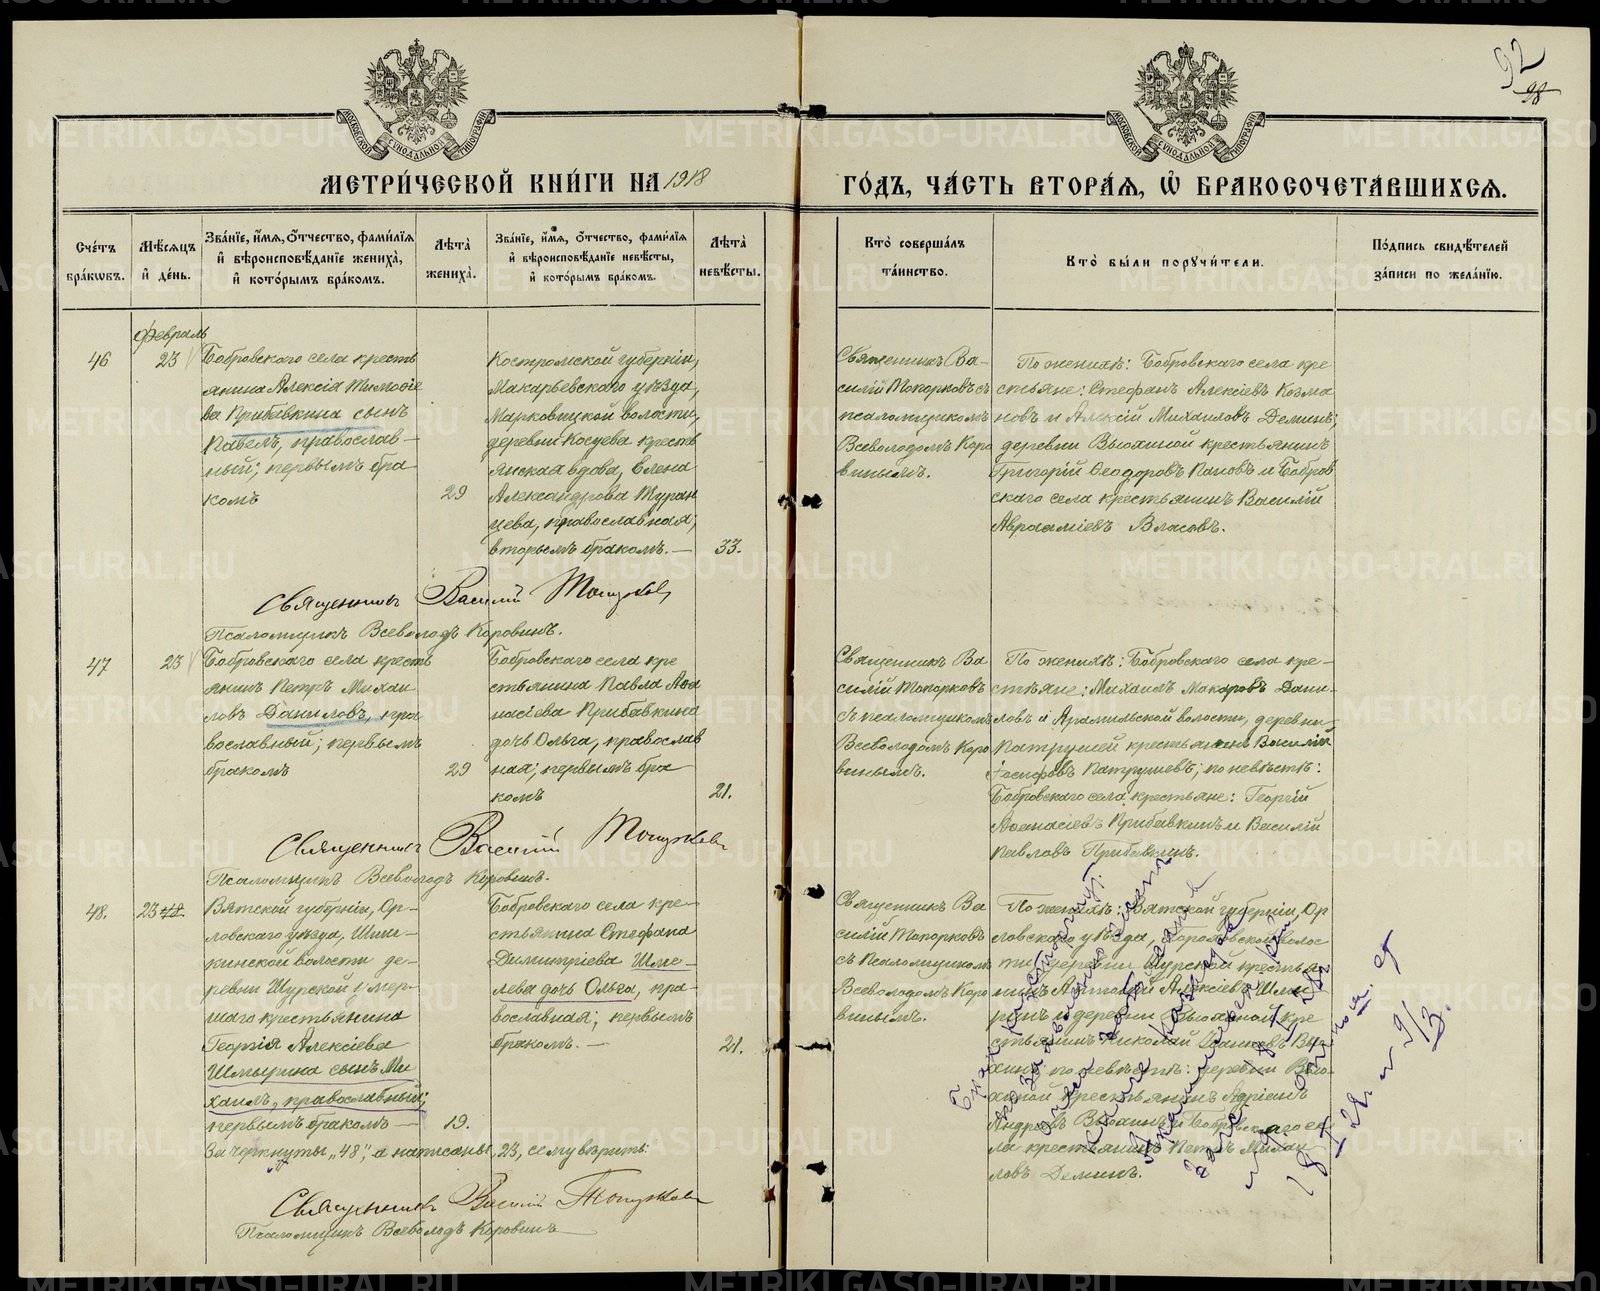 92
98
МОСКОВСКОЙ СѴНОДАЛЬНОЙ ТИПОГРАФІИ
МОСКОВСКОЙ СѴНОДАЛЬНОЙ ТИПОГРАФІИ
МЕТРИ́ЧЕСКОЙ КНИ́ГИ НА 1918
ГО́ДЪ, ЧА́СТЬ ВТОРА́Я, Ѡ БРАКОСОЧЕТА́ВШИХСЯ.
Сче́тъ бра́кѡвъ.
Мѣ́сяцъ и де́нь.
Зва́нїе, и́мя, ѻ́тчество, фами́лїя и вѣроисповѣ́данїе жениха̀, и кото́рымъ бра́комъ.
Лѣ́та жениха̀.
Зва́нїе, и́мя, ѻ́тчество, фами́лїя и вѣроисповѣ́данїе невѣ́сты, и кото́рымъ бра́комъ.
Лѣ́та невѣ́сты.
Кто̀ соверша́лъ та́инство.
Кто̀ бы́ли порꙋчи́тели.
По́дпись свидѣ́телей за́писи по жела́нїю.
Февраль
46
23
Бобровскаго села кресть
янина Алексія Тимофее
ва Прибавкина сынъ
Павелъ, православ-
ный; первымъ бра
комъ
29
Костромской губерніи,
Макарьевскаго уѣзда,
Марковицкой волости,
деревни Косуева кресть
янская вдова, Елена
Александрова Туран
цева, православная;
вторымъ бракомъ. —
33.
Священникъ Ва-
силій Топорковъ съ
псаломщикомъ
Всеволодомъ Коро
винымъ.
По женихѣ: Бобровскаго села кре
стьяне: Стефанъ Алексіевъ Козма
новъ и Алексій Михаиловъ Деминъ;
деревни Вьюхиной крестьянинъ
Григорій Ѳеодоровъ Пановъ и Бобров
скаго села крестьянинъ Василій
Авраамiевъ Власовъ.
Священникъ Василій Топорковъ
Псаломщикъ Всеволодъ Коровинъ.
47
23
Бобровскаго села кресть
янинъ Петръ Михаи
ловъ Даниловъ, пра
вославный; первымъ
бракомъ
29
Бобровскаго села кре
стьянина Павла Аѳа
насіева Прибавкина
дочь Ольга, православ
ная; первымъ бра
комъ
21.
Священникъ Ва
силій Топорковъ
съ псаломщикомъ
Всеволодомъ Коро
винымъ.
По женихѣ: Бобровскаго села кре-
стьяне: Михаилъ Макаровъ Дани-
ловъ и Арамильской волости, деревни
Патрушей крестьянинъ Василій
Іосифовъ Патрушевъ; по невѣстѣ:
Бобровскаго села крестьяне: Георгій
Аѳанасіевъ Прибавкинъ и Василій
Павловъ Прибавкинъ.
Священникъ Василій Топорковъ
Псаломщикъ Всеволодъ Коровинъ.
48.
23 48.
Вятской губерніи, Ор-
ловскаго уѣзда, Шни-
кинской волости де-
ревни Шурской умер-
шаго крестьянина
Георгія Алексіева
Шмырина сынъ Ми
хаилъ, православный;
первымъ бракомъ —
19.
Бобровскаго села кре-
стьянина Стефана
Димитріева Шме-
лева дочь Ольга, пра-
вославная; первымъ
бракомъ. —
21.
Священникъ Ва
силій Топорковъ
съ псаломщикомъ
Всеволодомъ Коро
винымъ.
По женихѣ: Вятской губерніи, Ор
ловскаго уѣзда,
деревни Шурской крестья
нинъ Алексіевъ Шмы
ринъ и деревни Вьюхиной кре
стьянинъ Николай Ивановъ Вью
хинъ; по невѣстѣ: деревни Вью
хиной крестьянинъ Адріанъ
Андреевъ Вьюхинъ и Бобровскаго се
ла крестьянинъ Петръ Михаи-
ловъ Деминъ.
Бракъ расторгнут
Зачеркнуты „48“, а написаны „23“, сему вѣрить:
Священникъ Василій Топорковъ
Псаломщикъ Всеволодъ Коровинъ
METRIKI.GASO-URAL.RU